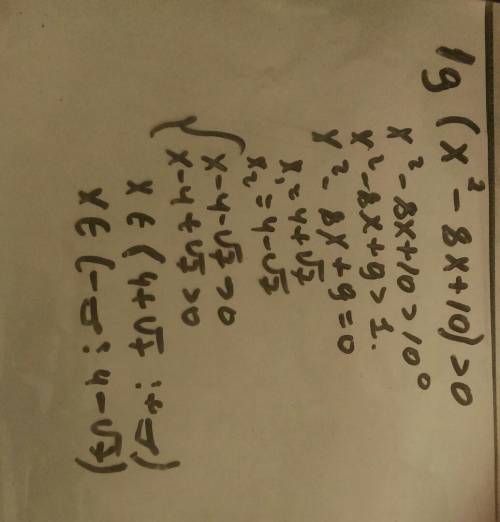 lg (x² - 8x + 10) > 0
x² - 8x + 10 > 10⁰
x² - 8x + 9 > 1.
x² - 8x + 9 = 0
x₁ = 4 + √7
x₂ = 4 - √7
{ x - 4 - √7 > 0
x - 4 + √7 > 0
x ∈ (4 + √7 ; + ∞)
x ∈ (-∞ ; 4 - √7)